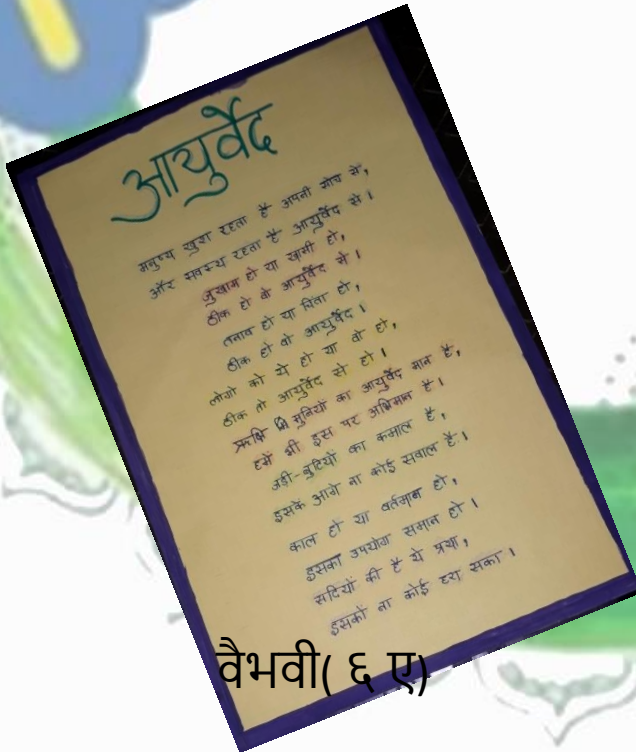 आयुर्वेद
मनुष्य खुश रहता है अपनी सोच से,
और स्वस्थ रहता है आयुर्वेद से।
जुखाम हो या खांसी हो,
ठीक हो वो आयुर्वेद से।
तनाव हो या चिंता हो,
ठीक हो वो आयुर्वेद।
लोगो को ये हो या वो हो,
ठीक तो आयुर्वेद से हो।
ऋषि मुनियों का आयुर्वेद मान है,
हमें भी इस पर अभिमान है।
जड़ी-बुटियों का कमाल है,
इसके आगे ना कोई सवाल है।
काल हो या वर्तमान हो,
इसका उपयोग समान हो।
सदियों की है ये प्रथा,
इसकों ना कोई हरा सका।
वैभवी( ६ ए)